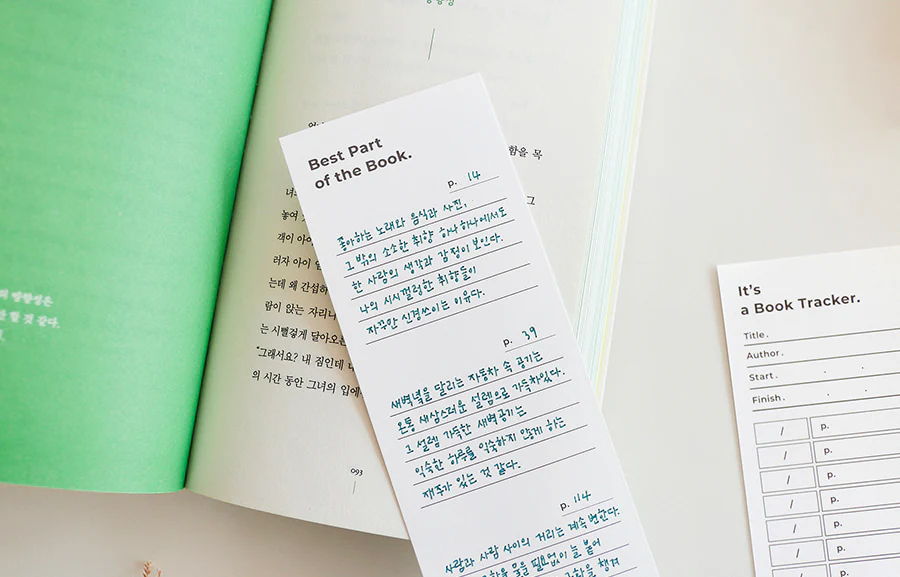 의 방향성은
할 것 같다.
함을 목
그
녀
놓여
객이 아이
러자 아이
는데 왜 간섭하
람이 앉는 자리나
는 시뻘겋게 달아오른
"그래서요? 내 짐인데
의 시간 동안 그녀의 입에
093
Best Part
of the Book.
p. 14
좋아하는 노래와 음식과 사진,
그 밖의 소소한 취향 하나하나에서도
한 사람의 생각과 감정이 보인다.
나의 시시껄렁한 취향들이
자꾸만 신경쓰이는 이유다.
p. 39
새벽녘을 달리는 자동차 속 공기는
온통 새삼스러운 설렘으로 가득차있다.
그 설렘 가득한 새벽공기는
익숙한 하루를 익숙하지 않게 하는
재주가 있는 것 같다.
p. 114
사람과 사람 사이의 거리는 계속 변한다.
물을 필요없이 늘 붙어
챙겨
It's
a Book Tracker.
Title.
Author.
Start. . .
Finish. . .
/ p.
/ p.
/ p.
/ p.
/ p.
/ p.